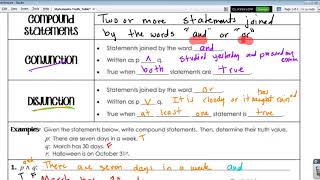 COMPOUND STATEMENTS
Two or more statements joined
by the words "and" or "or"
CONJUNCTION
• Statements joined by the word and
• Written as p ∧ q: studied yesterday and passed my exam
• True when both statements are true
DISJUNCTION
• Statements joined by the word or
• Written as p v q: It is cloudy or it
• True when at least one statement is true
Examples: Given the statements below, write compound statements. Then, determine their truth value.
p: There are seven days in a week. T
q: March has 30 days. F
r: Halloween is on October 31st.
and
1. p ∧ q: There are seven days in a week and
T F March has 30 days